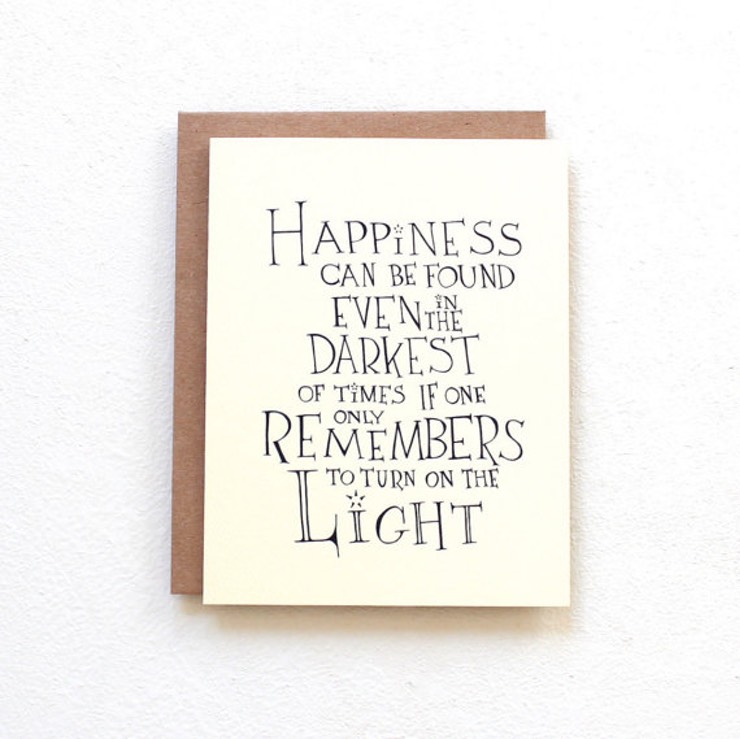 HAPPiNESS
CAN BE FOUND
EVEN IN THE
DARKEST
OF TiMES IF ONE
ONLY
REMEMBERS
TO TURN ON THE
LiGHT